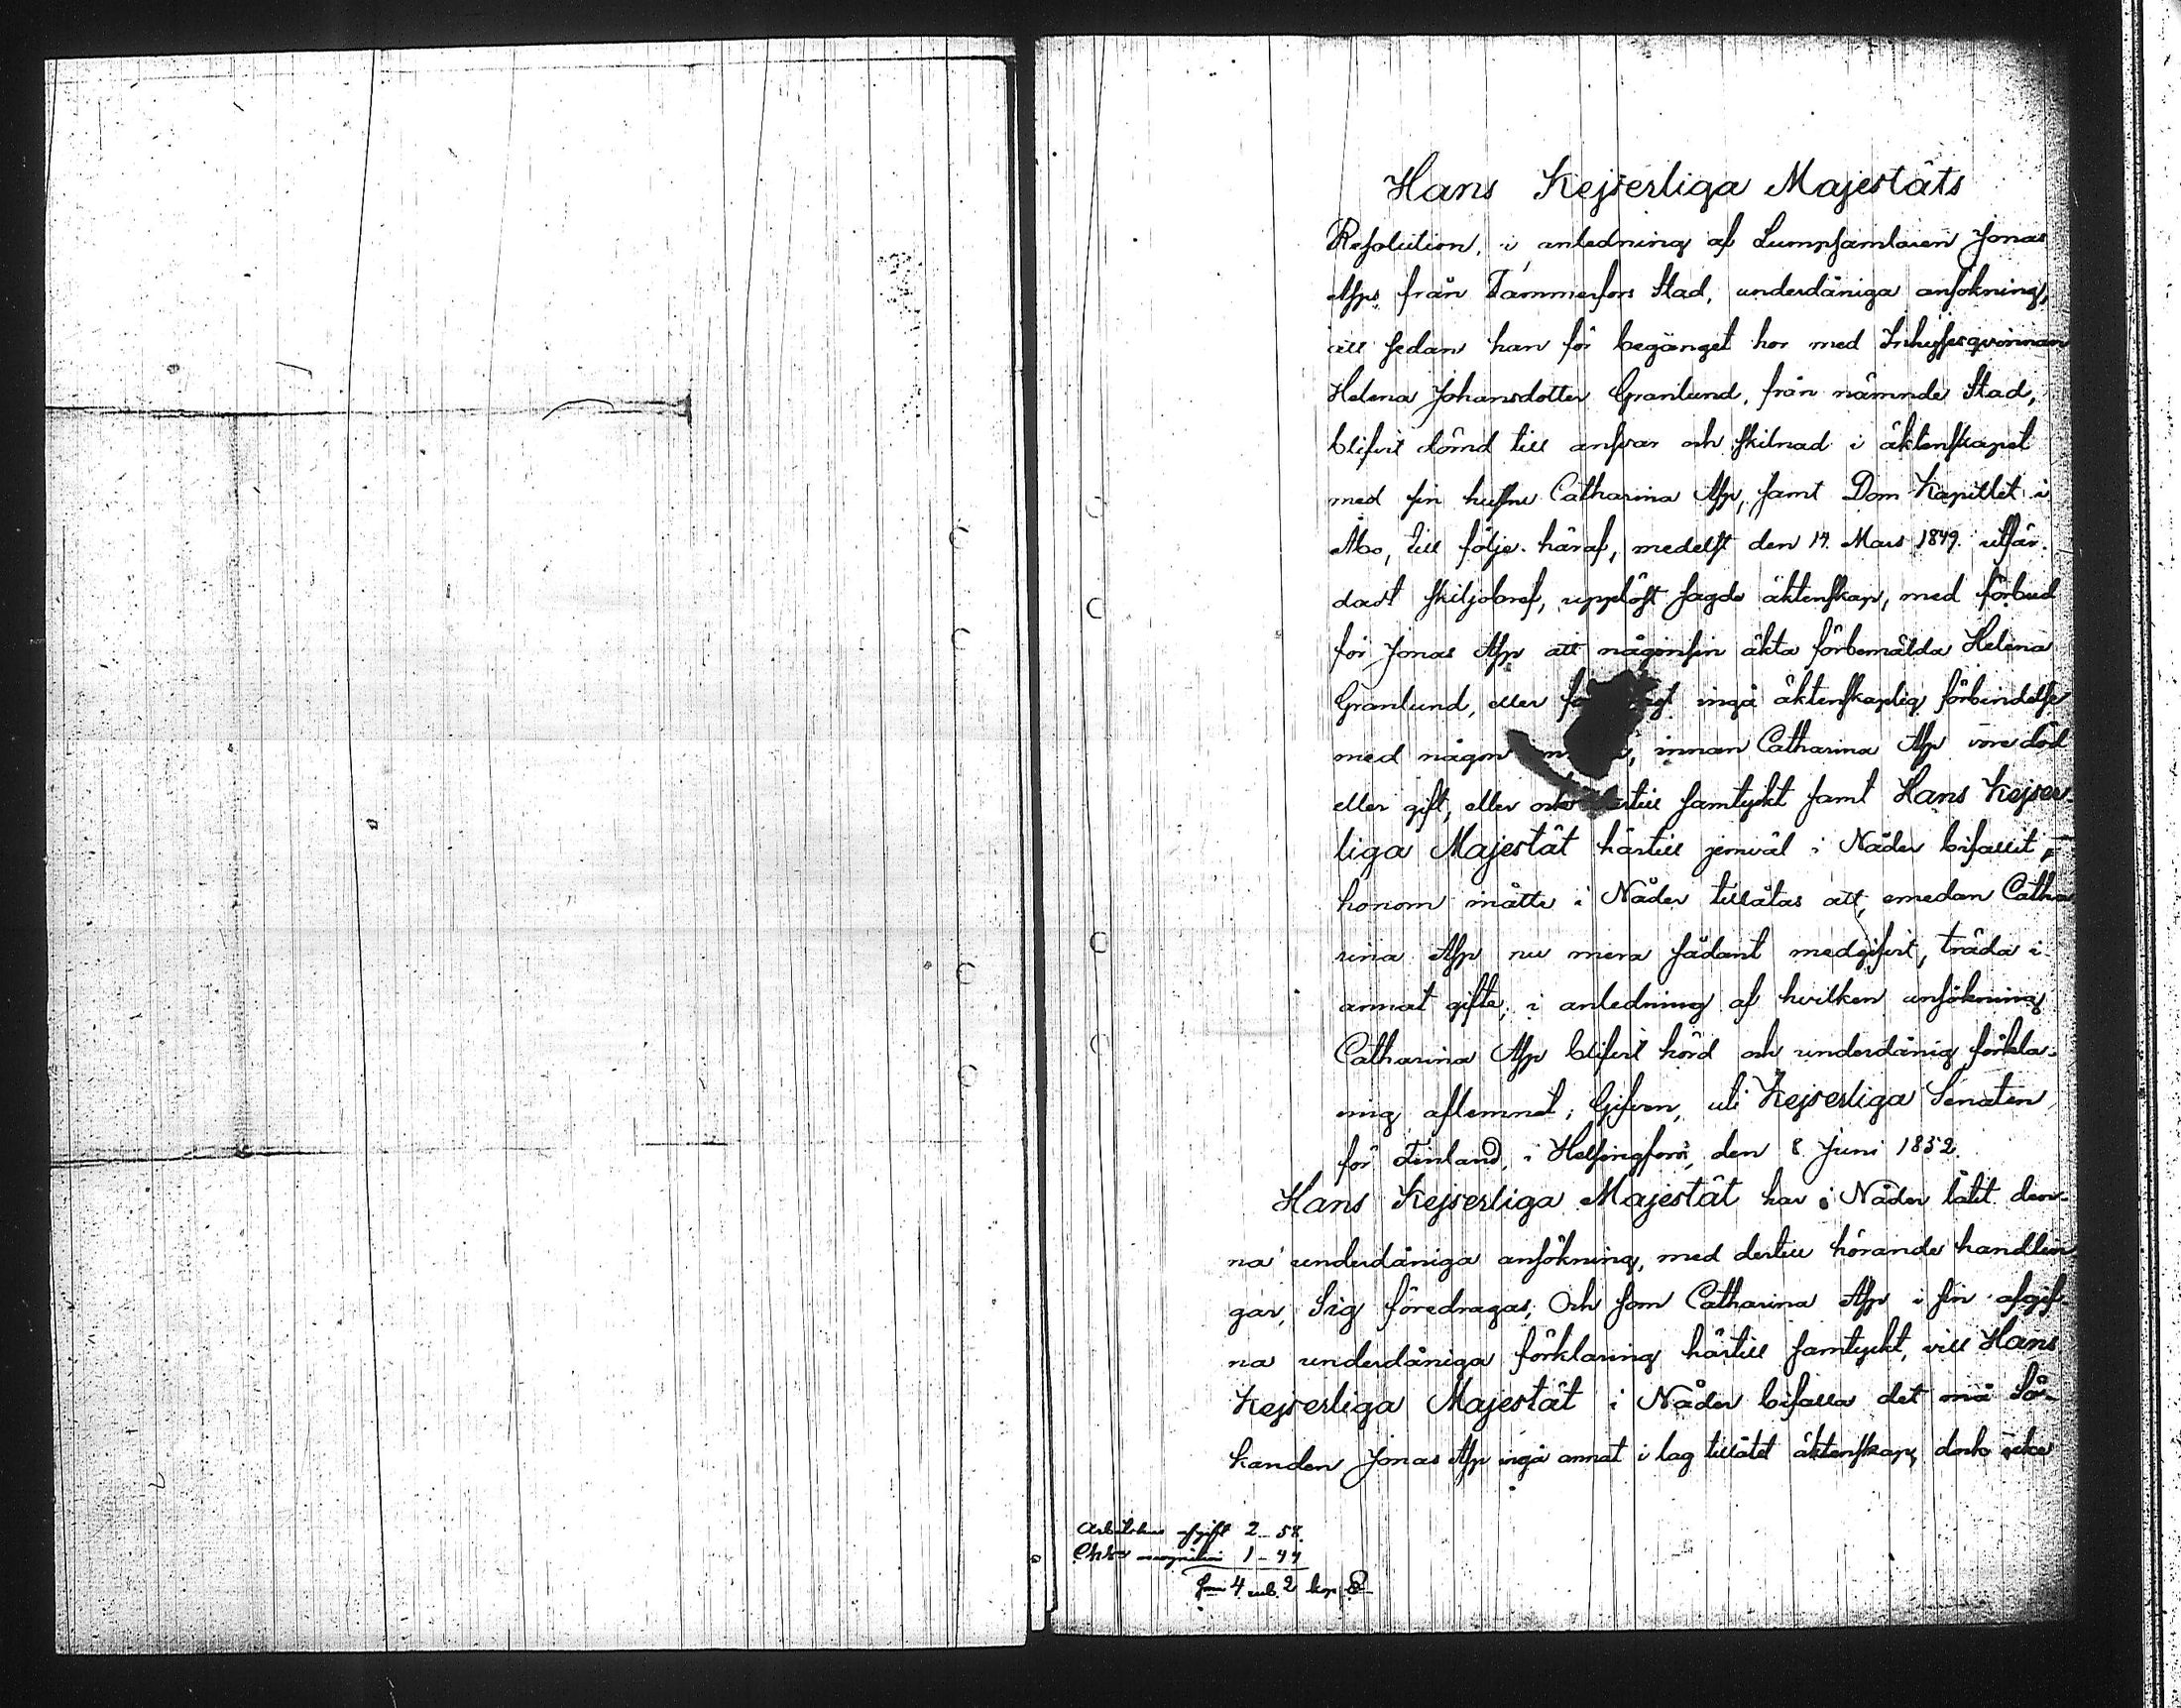 Hans Kejserliga Majestäts
Resolution, i anledning af Lumpsamlaren Jonas
Asps från Tammerfors Stad, underdåniga ansökning,
att sedan han för begånget hor med Inhysesqvinnan
Helena Johansdotter Granlund, från nämnde Stad,
blifvit dömd till ansvar och skilnad i äktenskapet
med sin hustru Catharina Asp, samt Dom Kapitlet i
Åbo, till följe häraf, medelst den 14 Mars 1849 utfär-
dadt skiljobref, upplöst sagde äktenskap, med förbud
för Jonas Asp att någonsin äkta förbemälda Helena
Granlund, eller ingå äktenskaplig förbindelse
med någon innan Catharina Asp vore död
eller gift, eller ock samtyckt samt Hans Kejser-
liga Majestät härtill jemväl i Nåder bifallit,
honom måtte i Nåder tillåtas att, emedan Catha-
rina Asp nu mera sådant medgifvit, träda i
annat gifte; i anledning af hvilken ansökning
Catharina Asp blifvit hörd och underdånig förkla-
ring aflemnat; Gifven, uti Kejserliga Senaten
för Finland, i Helsingfors, den 8 Juni 1852.
Hans Kejserliga Majestät har i Nåder låtit den-
na underdåniga ansökning, med dertill hörande handlin-
gar, Sig föredragas; Och som Catharina Asp i sin afgif-
na underdåniga förklaring härtill samtyckt, vill Hans
Kejserliga Majestät i Nåder bifalla det må Sö-
kanden Jonas Asp ingå annat i lag tillåtet äktenskap, dock icke
Arbetshus afgift 2 – 58.
Ch: recognition 1 – 44
4 rub. 2 kop. S